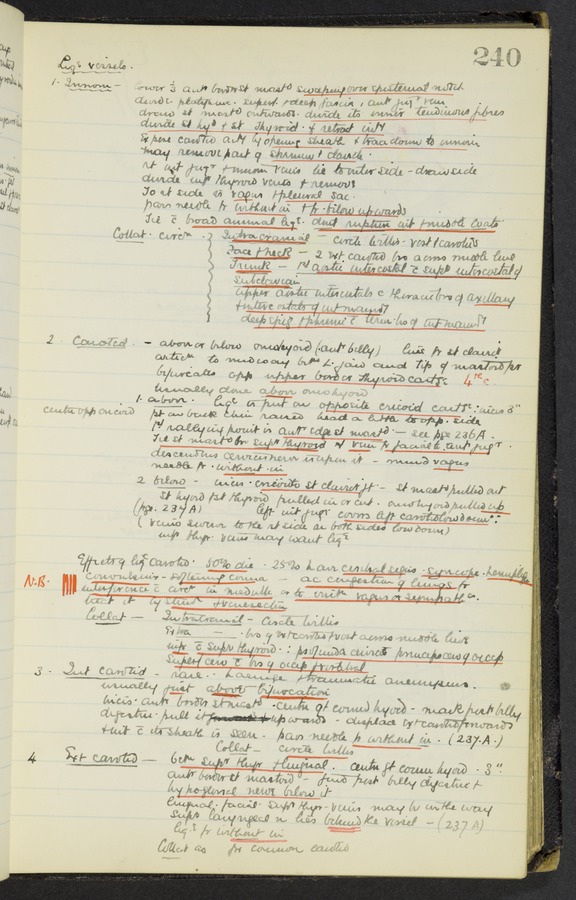 240
Lig. vessels.
1. Innom — lower 1/3 ant border st mastd sweeping over episternal notch
divide platysma. superf. & deep fascia, ant jugr vein
draw st mastd outwards. divide its inner tendinous fibres
divide st hyd & st thyroid & retract
Expose carotid arty by opening sheath & trace down to innom
may remove part of sternum & clavicle.
rt int jugr & innom veins lie to outer side - draw aside
divide inf thyroid veins & remove
To rt side is vagus & pleural sac.
pass needle fr without in & fr below upwards
Tie c broad animal lig. don't rupture int & middle coats
Collat. circn. Intracranial — circle Willis - vert & carotids
Face & neck — 2 ext. carotids bro across middle line
Trunk — 1st aortic intercostal c supr intercostal of
subclavian
upper aortic intercostals c thoracic bro of axillary
& intercostals of int mammy
deep epig & phrenic c term bro of int mammy
2. Carotid. — above or below omohyoid (ant belly) line fr st clavic
artic to midway betn L. jaw and tip of mastoid pr
bifurcates opp upper border thyroid cart. 4th c.
usually done above omohyoid
centre opp cricoid
1. above. lig. is put on opposite cricoid cart. incis 3"
pt on back chin raised head a little to opp. side
1st rallying point is ant edge st mastd — see pge 236A.
Tie st mastd br supr thyroid & vein & facial & ant jugr.
descendens cervicis nerve is upon it — mind vagus
needle fr. without in
2 below — incis. cricoid to st clavic jt — st mastd pulled out
st hyoid & st thyroid pulled in or cut. omohyoid pulled up
(pge. 237A) left int jugr covers left carotid low down.
(veins swerve to the rt side on both sides low down)
inf thyr. veins may want lig.
Effects of lig carotid. 50% die. 25% have cerebral signs. syncope. hemipleg
N.B. convulsions - softening coma — ac congestion of lungs fr
interference c circn in medulla or to vagus or sympathc.
treat it by & venesection
Collat — Intracranial — Circle Willis
Extra — bro of ext carotid & vert across middle line
inf c supr thyroid : profunda cervicis princeps cerv of occip
superf cerv c bro of occip & vertebral
3. Int carotid — rare. haemorrhage & traumatic aneurysms.
usually just above bifurcation
incis. ant border st mastd. centre gt cornu hyoid - mark post belly
digastric. pull it upwards - displace ext carotid forwards
& int c its sheath is seen. pass needle fr without in. (237.A.)
Collat — circle Willis
4 Ext carotid — betn supr thyr & lingual. centre gt cornu hyoid. 3".
ant border st mastoid — find post belly digastric &
hypoglossal nerve below it
lingual. facial. supr thyr. veins may be in the way
supr laryngeal n lies behind the vessel — (237A)
lig. fr without in
Collat as for common carotid